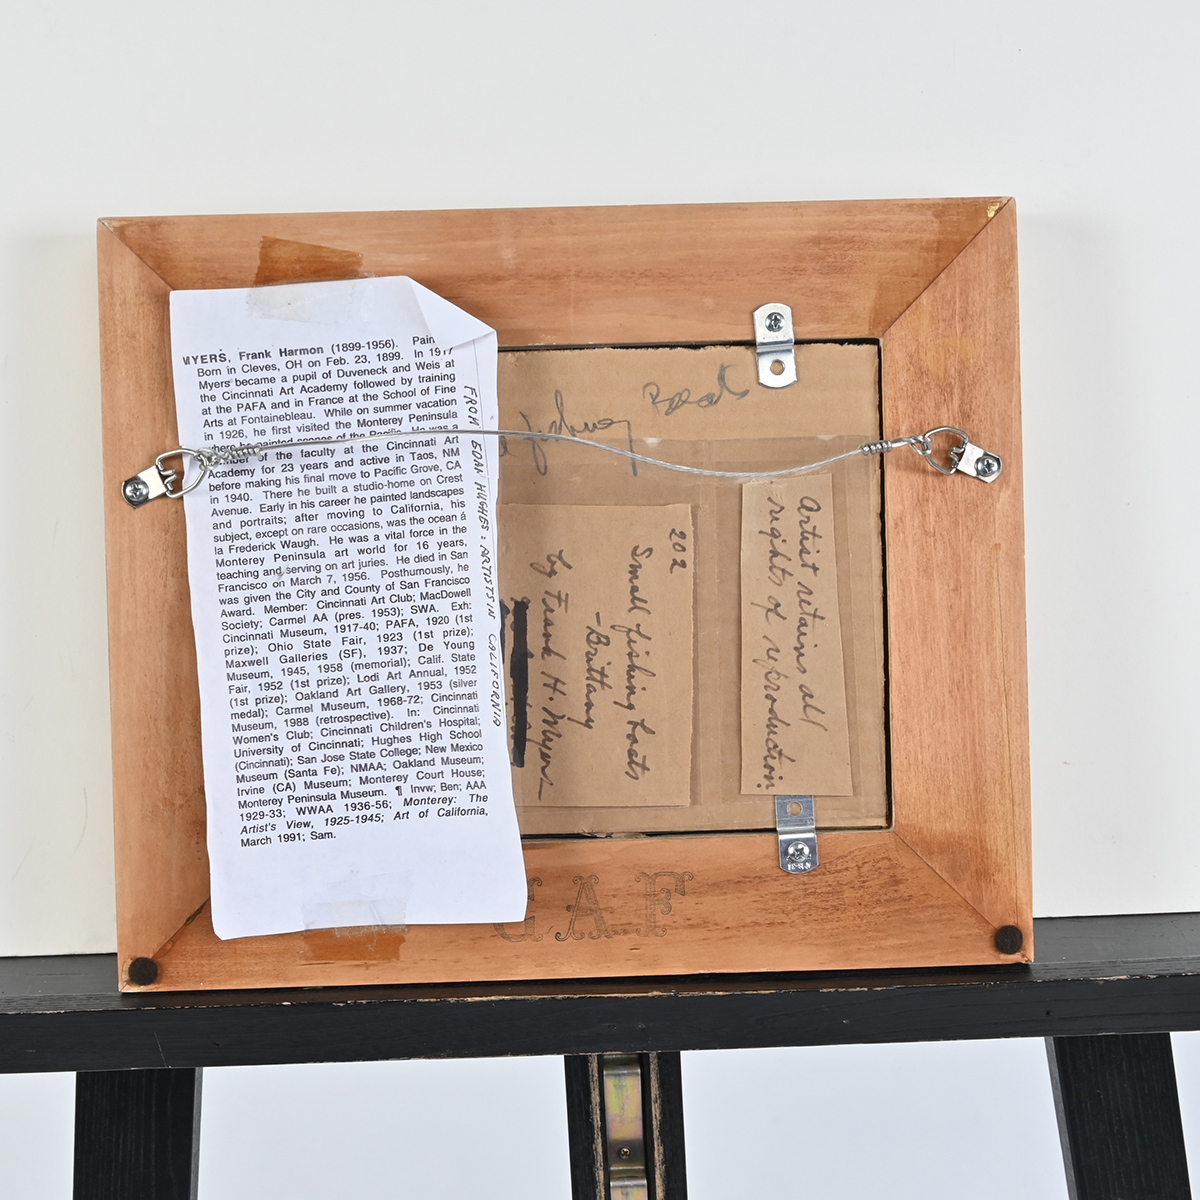 MYERS, Frank Harmon (1899-1956).
Born in Cleves, OH on Feb. 23, 1899. In 1917
Myers became a pupil of Duveneck and Weis at
the Cincinnati Art Academy followed by training
at the PAFA and in France at the School of Fine
Arts at Fontainebleau. While on summer vacation
in 1926, he first visited the Monterey Peninsula
where he painted scenes of the Pacific. He was a
member of the faculty at the Cincinnati Art
Academy for 23 years and active in Taos, NM
before making his final move to Pacific Grove, CA
in 1940. There he built a studio-home on Crest
Avenue. Early in his career he painted landscapes
and portraits; after moving to California, his
subject, except on rare occasions, was the ocean á
la Frederick Waugh. He was a vital force in the
Monterey Peninsula art world for 16 years,
teaching and serving on art juries. He died in San
Francisco on March 7, 1956. Posthumously, he
was given the City and County of San Francisco
Award. Member: Cincinnati Art Club; MacDowell
Society; Carmel AA (pres. 1953); SWA. Exh:
Cincinnati Museum, 1917-40; PAFA, 1920 (1st
prize); Ohio State Fair, 1923 (1st prize);
Maxwell Galleries (SF), 1937; De Young
Museum, 1945, 1958 (memorial); Calif. State
Fair, 1952 (1st prize); Lodi Art Annual, 1952
(1st prize); Oakland Art Gallery, 1953 (silver
medal); Carmel Museum, 1968-72; Cincinnati
Museum, 1988 (retrospective). In: Cincinnati
Women's Club; Cincinnati Children's Hospital;
University of Cincinnati; Hughes High School
(Cincinnati); San Jose State College; New Mexico
Museum (Santa Fe); NMAA; Oakland Museum;
Irvine (CA) Museum; Monterey Court House;
Monterey Peninsula Museum. ¶ Invw; Ben; AAA
1929-33; WWAA 1936-56; Monterey: The
Artist's View, 1925-1945; Art of California,
March 1991; Sam.
FROM EDAN HUGHES: ARTISTS IN CALIFORNIA
Boats
202
Small fishing boats
-Brittany
by Frank H. Myers
Artist retains all
rights of reproduction.
G.A.F